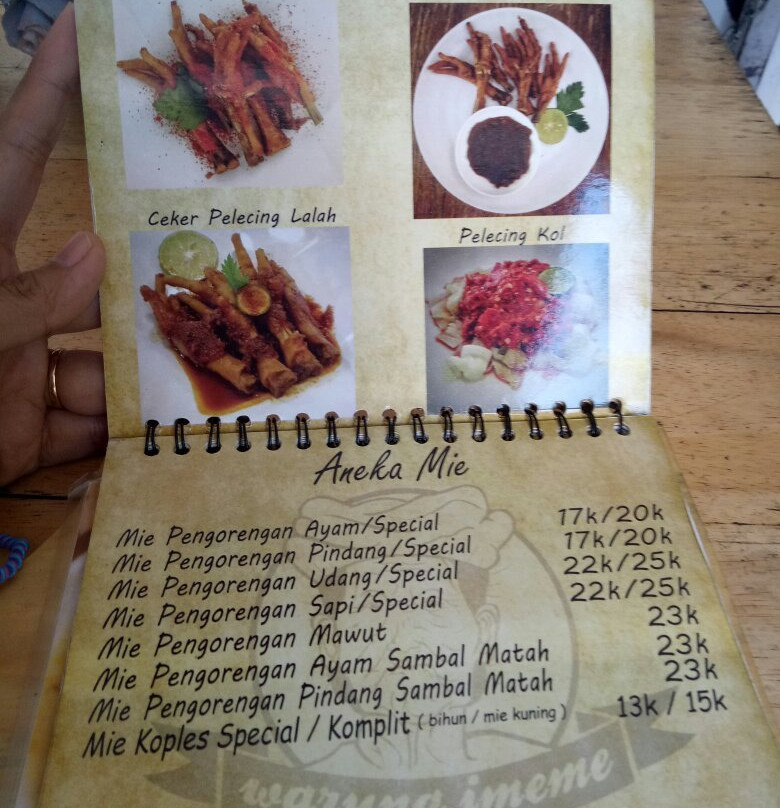 Ceker Pelecing Lalah
Pelecing Kol
Aneka Mie
Mie Pengorengan Ayam/Special 17k/20k
Mie Pengorengan Pindang/Special 17k/20k
Mie Pengorengan Udang/Special 22k/25k
Mie Pengorengan Sapi/Special 22k/25k
Mie Pengorengan Mawut 23k
Mie Pengorengan Ayam Sambal Matah 23k
Mie Pengorengan Pindang Sambal Matah 23k
Mie Koples Special / Komplit ( bihun / mie kuning ) 13k / 15k
warung imeme